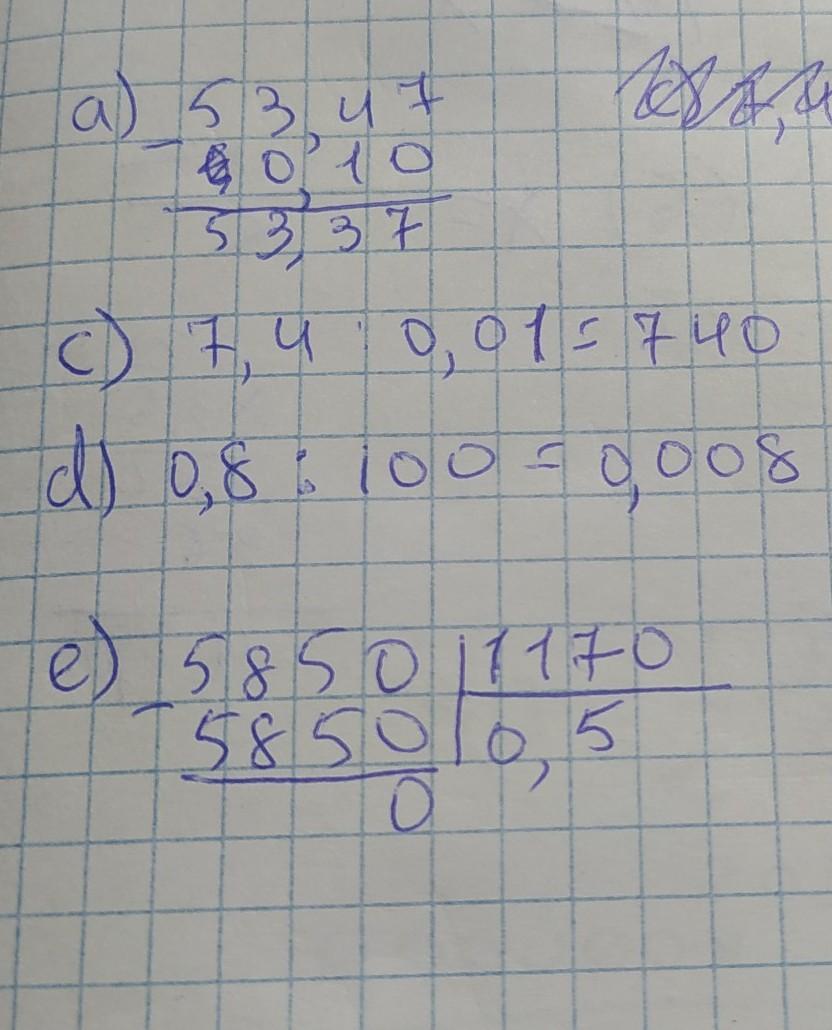 a) 53,47
- 0,10
53,37
c) 7,4 : 0,01 = 740
d) 0,8 : 100 = 0,008
e) 5850 | 1170
- 5850 | 0,5
0